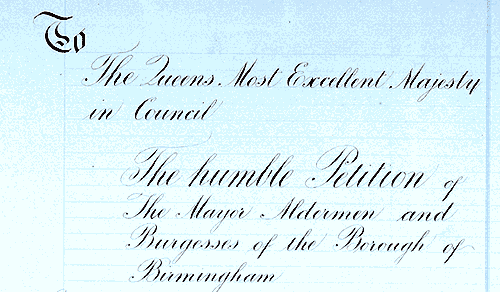 To
The Queens Most Excellent Majesty
in Council
The humble Petition of
The Mayor Aldermen and
Burgesses of the Borough of
Birmingham